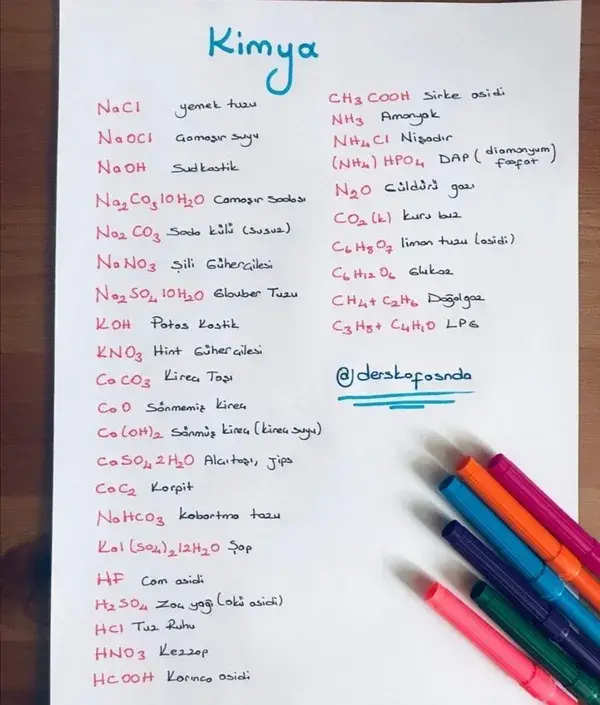 Kimya
NaCl yemek tuzu
NaOCl Çamaşır suyu
NaOH Sudkostik
Na₂CO₃10H₂O Çamaşır Sodası
Na₂CO₃ Soda külü (susuz)
NaNO₃ Şili Gühergilesi
Na₂SO₄10H₂O Glouber Tuzu
KOH Potas Kostik
KNO₃ Hint Gühergilesi
CaCO₃ Kireç Taşı
CaO Sönmemiş kireç
Ca(OH)₂ Sönmüş kireç (kireç suyu)
CaSO₄2H₂O Alçıtaşı, jips
CaC₂ Karpit
NaHCO₃ kabartma tozu
Kal(SO₄)₂12H₂O Şap
HF Cam asidi
H₂SO₄ Zaç yağı (akü asidi)
HCl Tuz Ruhu
HNO₃ Kezzap
HCOOH Karınca asidi
CH₃COOH Sirke asidi
NH₃ Amonyak
NH₄Cl Nişadır
(NH₄)HPO₄ DAP (diamonyum fosfat)
N₂O Güldürü gazı
CO₂(k) kuru buz
C₆H₈O₇ limon tuzu (asidi)
C₆H₁₂O₆ Glukoz
CH₄+C₂H₆ Doğalgaz
C₃H₈+C₄H₁₀ LPG
@derskafasnda